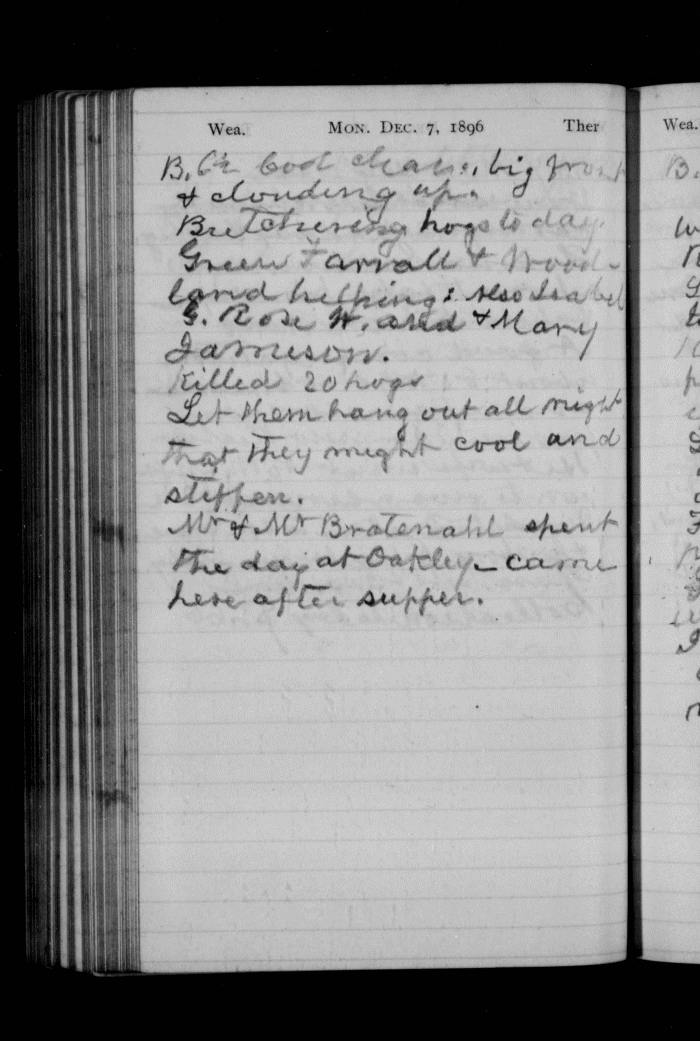 Wea. Mon. Dec. 7, 1896 Ther
B. 6½ Cool clear: big frost
& clouding up.
Butchering hogs to day.
Green Farrall & Wood-
land helping: Also Isabel
G. Rose H. and & Mary
Jameson.
Killed 20 hogs
Let them hang out all night
that they might cool and
stiffen.
Mr & Mr Bratenahl spent
the day at Oakley - came
here after supper.
Wea.
B.